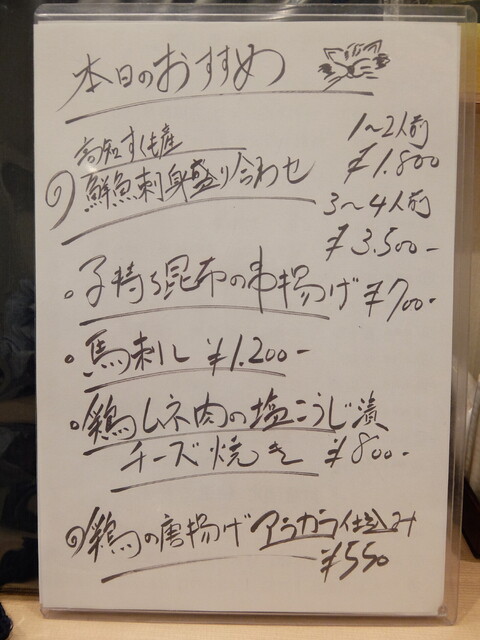 本日のおすすめ
高知すくも産
鮮魚刺身盛り合わせ
1~2人前
¥1.800
3~4人前
¥3.500-
。子持ち昆布の串揚げ ¥700-
。馬刺し ¥1.200-
。鶏ムネ肉の塩こうじ漬
チーズ焼き ¥800-
鶏の唐揚げ アラカラ仕込み
¥550